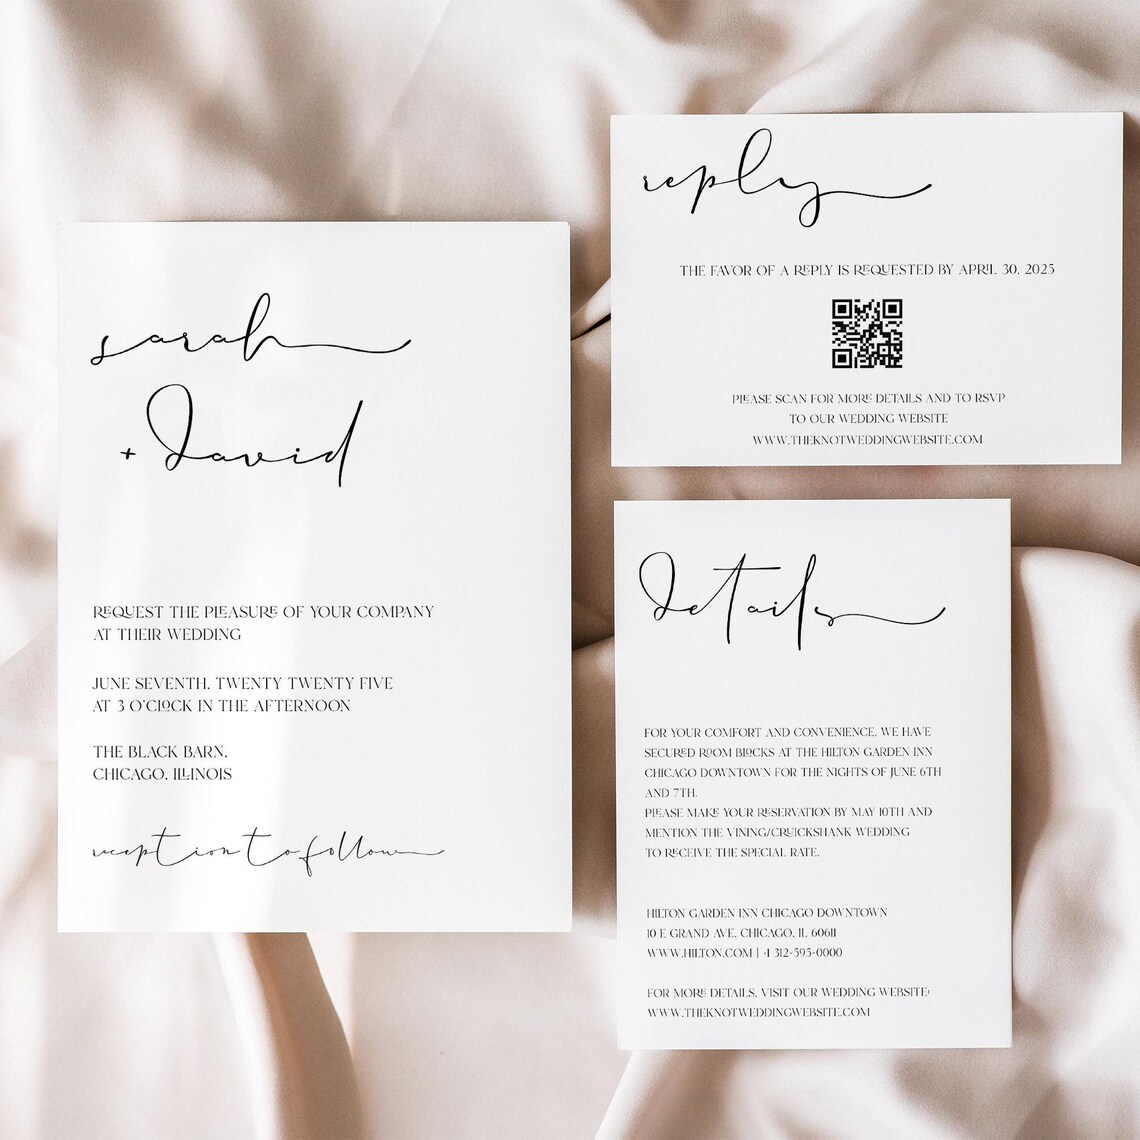 sarah
+ David
REQUEST THE PLEASURE OF YOUR COMPANY
AT THEIR WEDDING
JUNE SEVENTH, TWENTY TWENTY FIVE
AT 3 O'CLOCK IN THE AFTERNOON
THE BLACK BARN,
CHICAGO, ILLINOIS
reception to follow
reply
THE FAVOR OF A REPLY IS REQUESTED BY APRIL 30, 2025
PLEASE SCAN FOR MORE DETAILS AND TO RSVP
TO OUR WEDDING WEBSITE
WWW.THEKNOTWEDDINGWEBSITE.COM
Details
FOR YOUR COMFORT AND CONVENIENCE, WE HAVE
SECURED ROOM BLOCKS AT THE HILTON GARDEN INN
CHICAGO DOWNTOWN FOR THE NIGHTS OF JUNE 6TH
AND 7TH.
PLEASE MAKE YOUR RESERVATION BY MAY 10TH AND
MENTION THE VINING/CRUICKSHANK WEDDING
TO RECEIVE THE SPECIAL RATE.
HILTON GARDEN INN CHICAGO DOWNTOWN
10 E GRAND AVE, CHICAGO, IL 60611
WWW.HILTON.COM | +1 312-595-0000
FOR MORE DETAILS, VISIT OUR WEDDING WEBSITE:
WWW.THEKNOTWEDDINGWEBSITE.COM